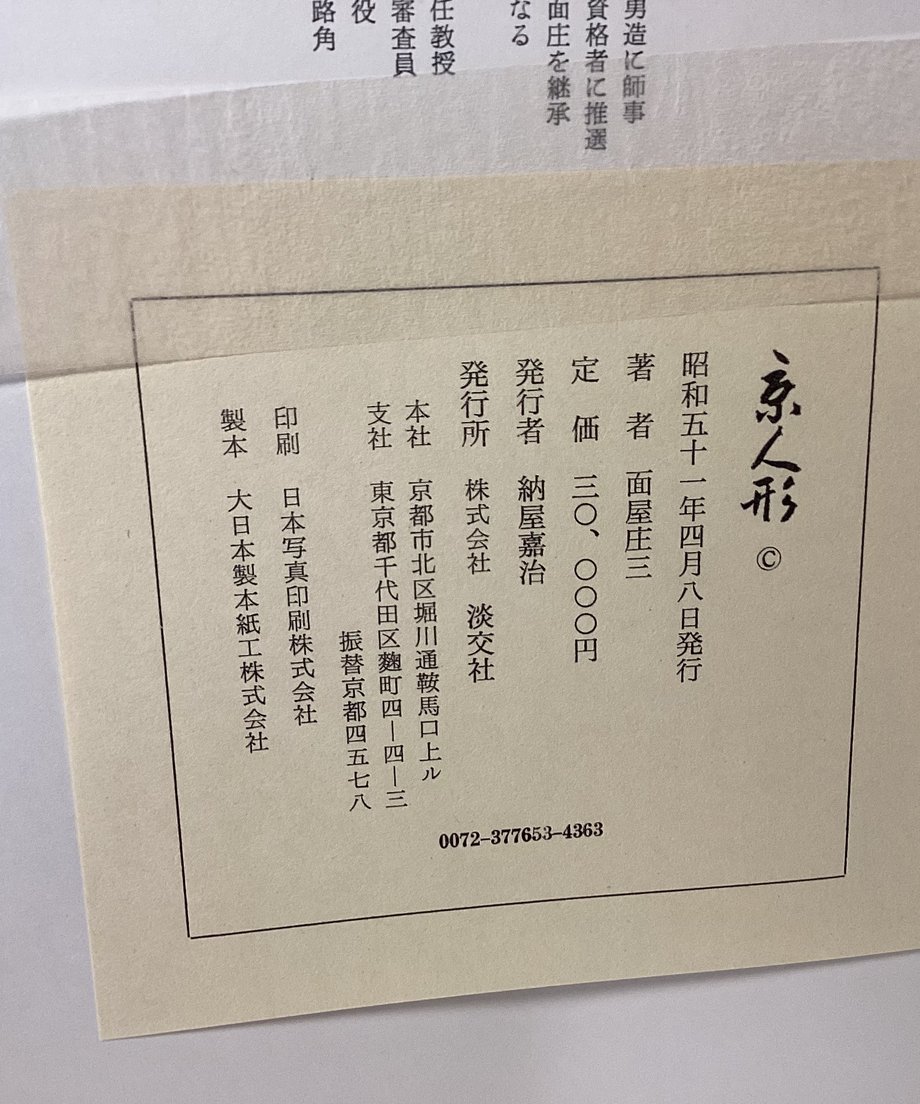 男造に師事
資格者に推選
面庄を継承
なる
任教授
審査員
役
路角
京人形 ©
昭和五十一年四月八日発行
著者 面屋庄三
定価 三〇、〇〇〇円
発行者 納屋嘉治
発行所 株式会社 淡交社
本社 京都市北区堀川通鞍馬口上ル
支社 東京都千代田区麴町四―四―三
振替京都四五七八
印刷 日本写真印刷株式会社
製本 大日本製本紙工株式会社
0072-377653-4363